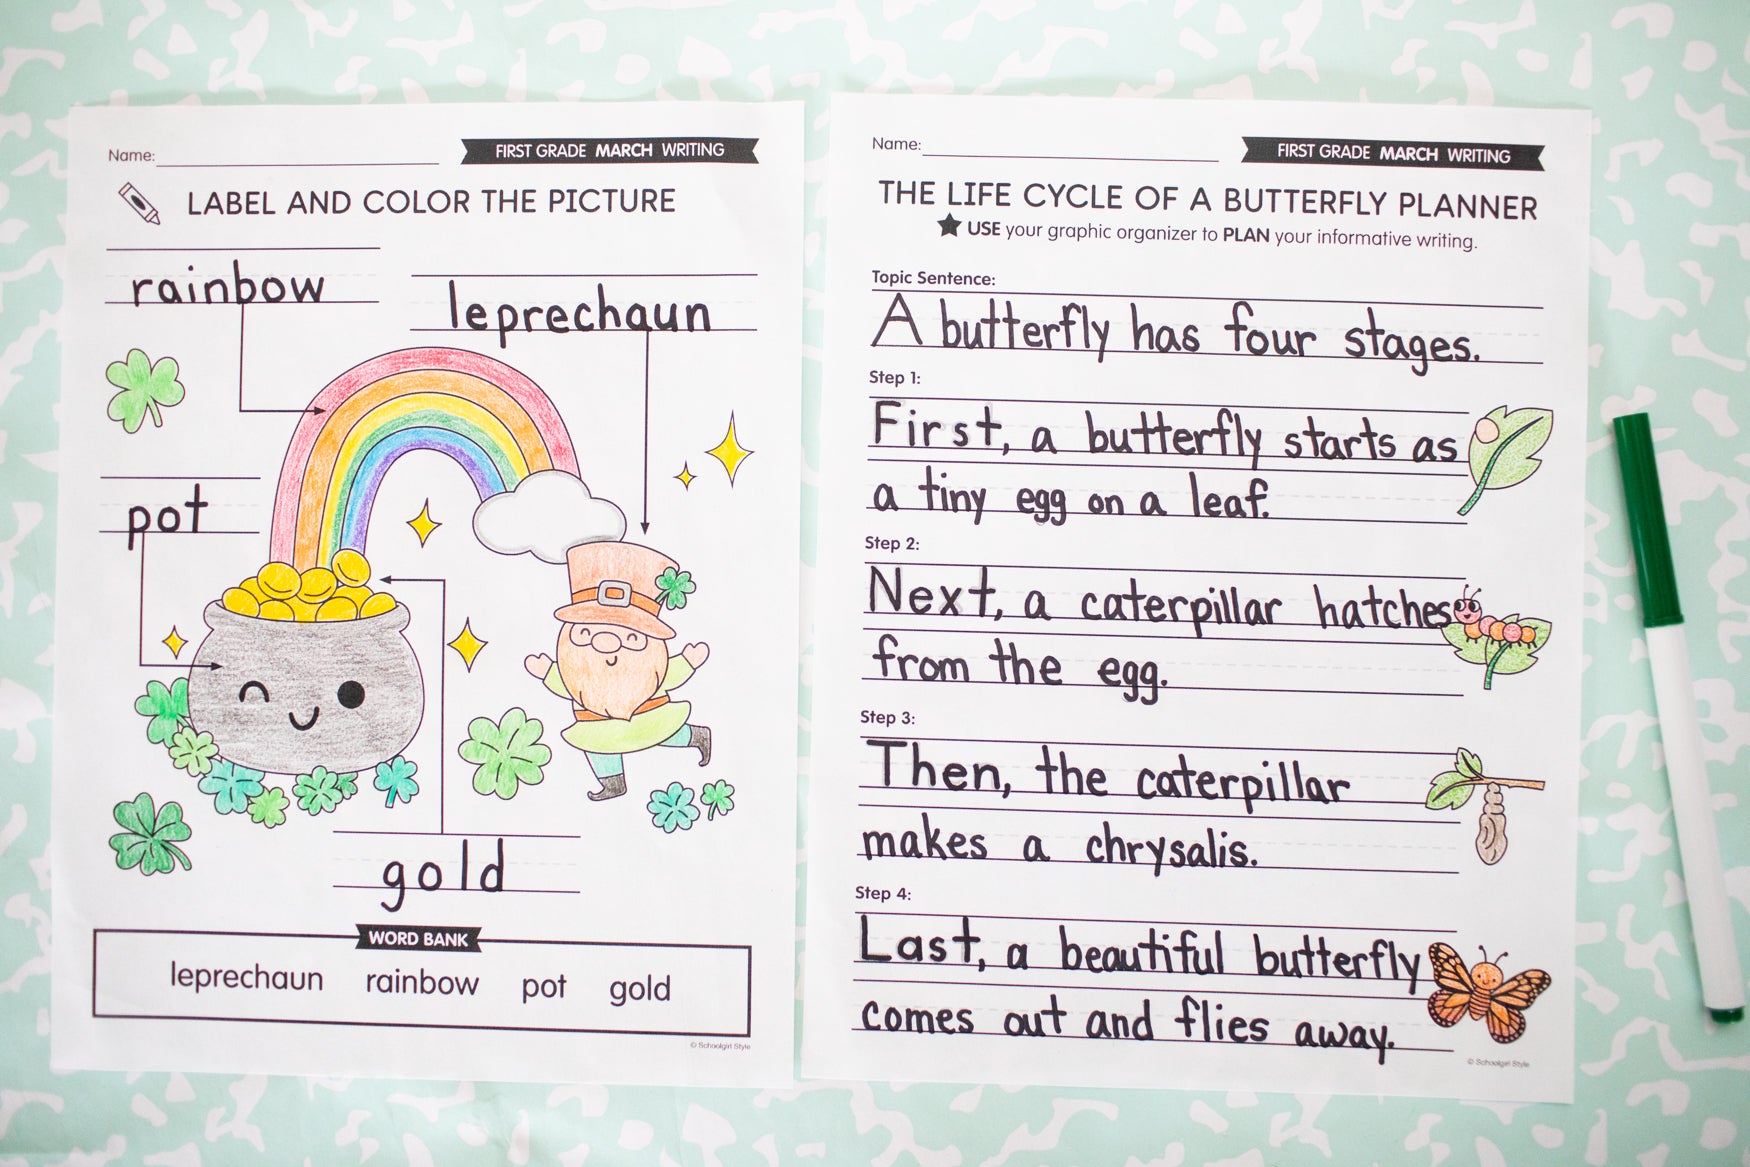 Name:
FIRST GRADE MARCH WRITING
LABEL AND COLOR THE PICTURE
rainbow
leprechaun
pot
gold
WORD BANK
leprechaun rainbow pot gold
© Schoolgirl Style
Name:
FIRST GRADE MARCH WRITING
THE LIFE CYCLE OF A BUTTERFLY PLANNER
USE your graphic organizer to PLAN your informative writing.
Topic Sentence:
A butterfly has four stages.
Step 1:
First, a butterfly starts as
a tiny egg on a leaf.
Step 2:
Next, a caterpillar hatches
from the egg.
Step 3:
Then, the caterpillar
makes a chrysalis.
Step 4:
Last, a beautiful butterfly
comes out and flies away.
© Schoolgirl Style